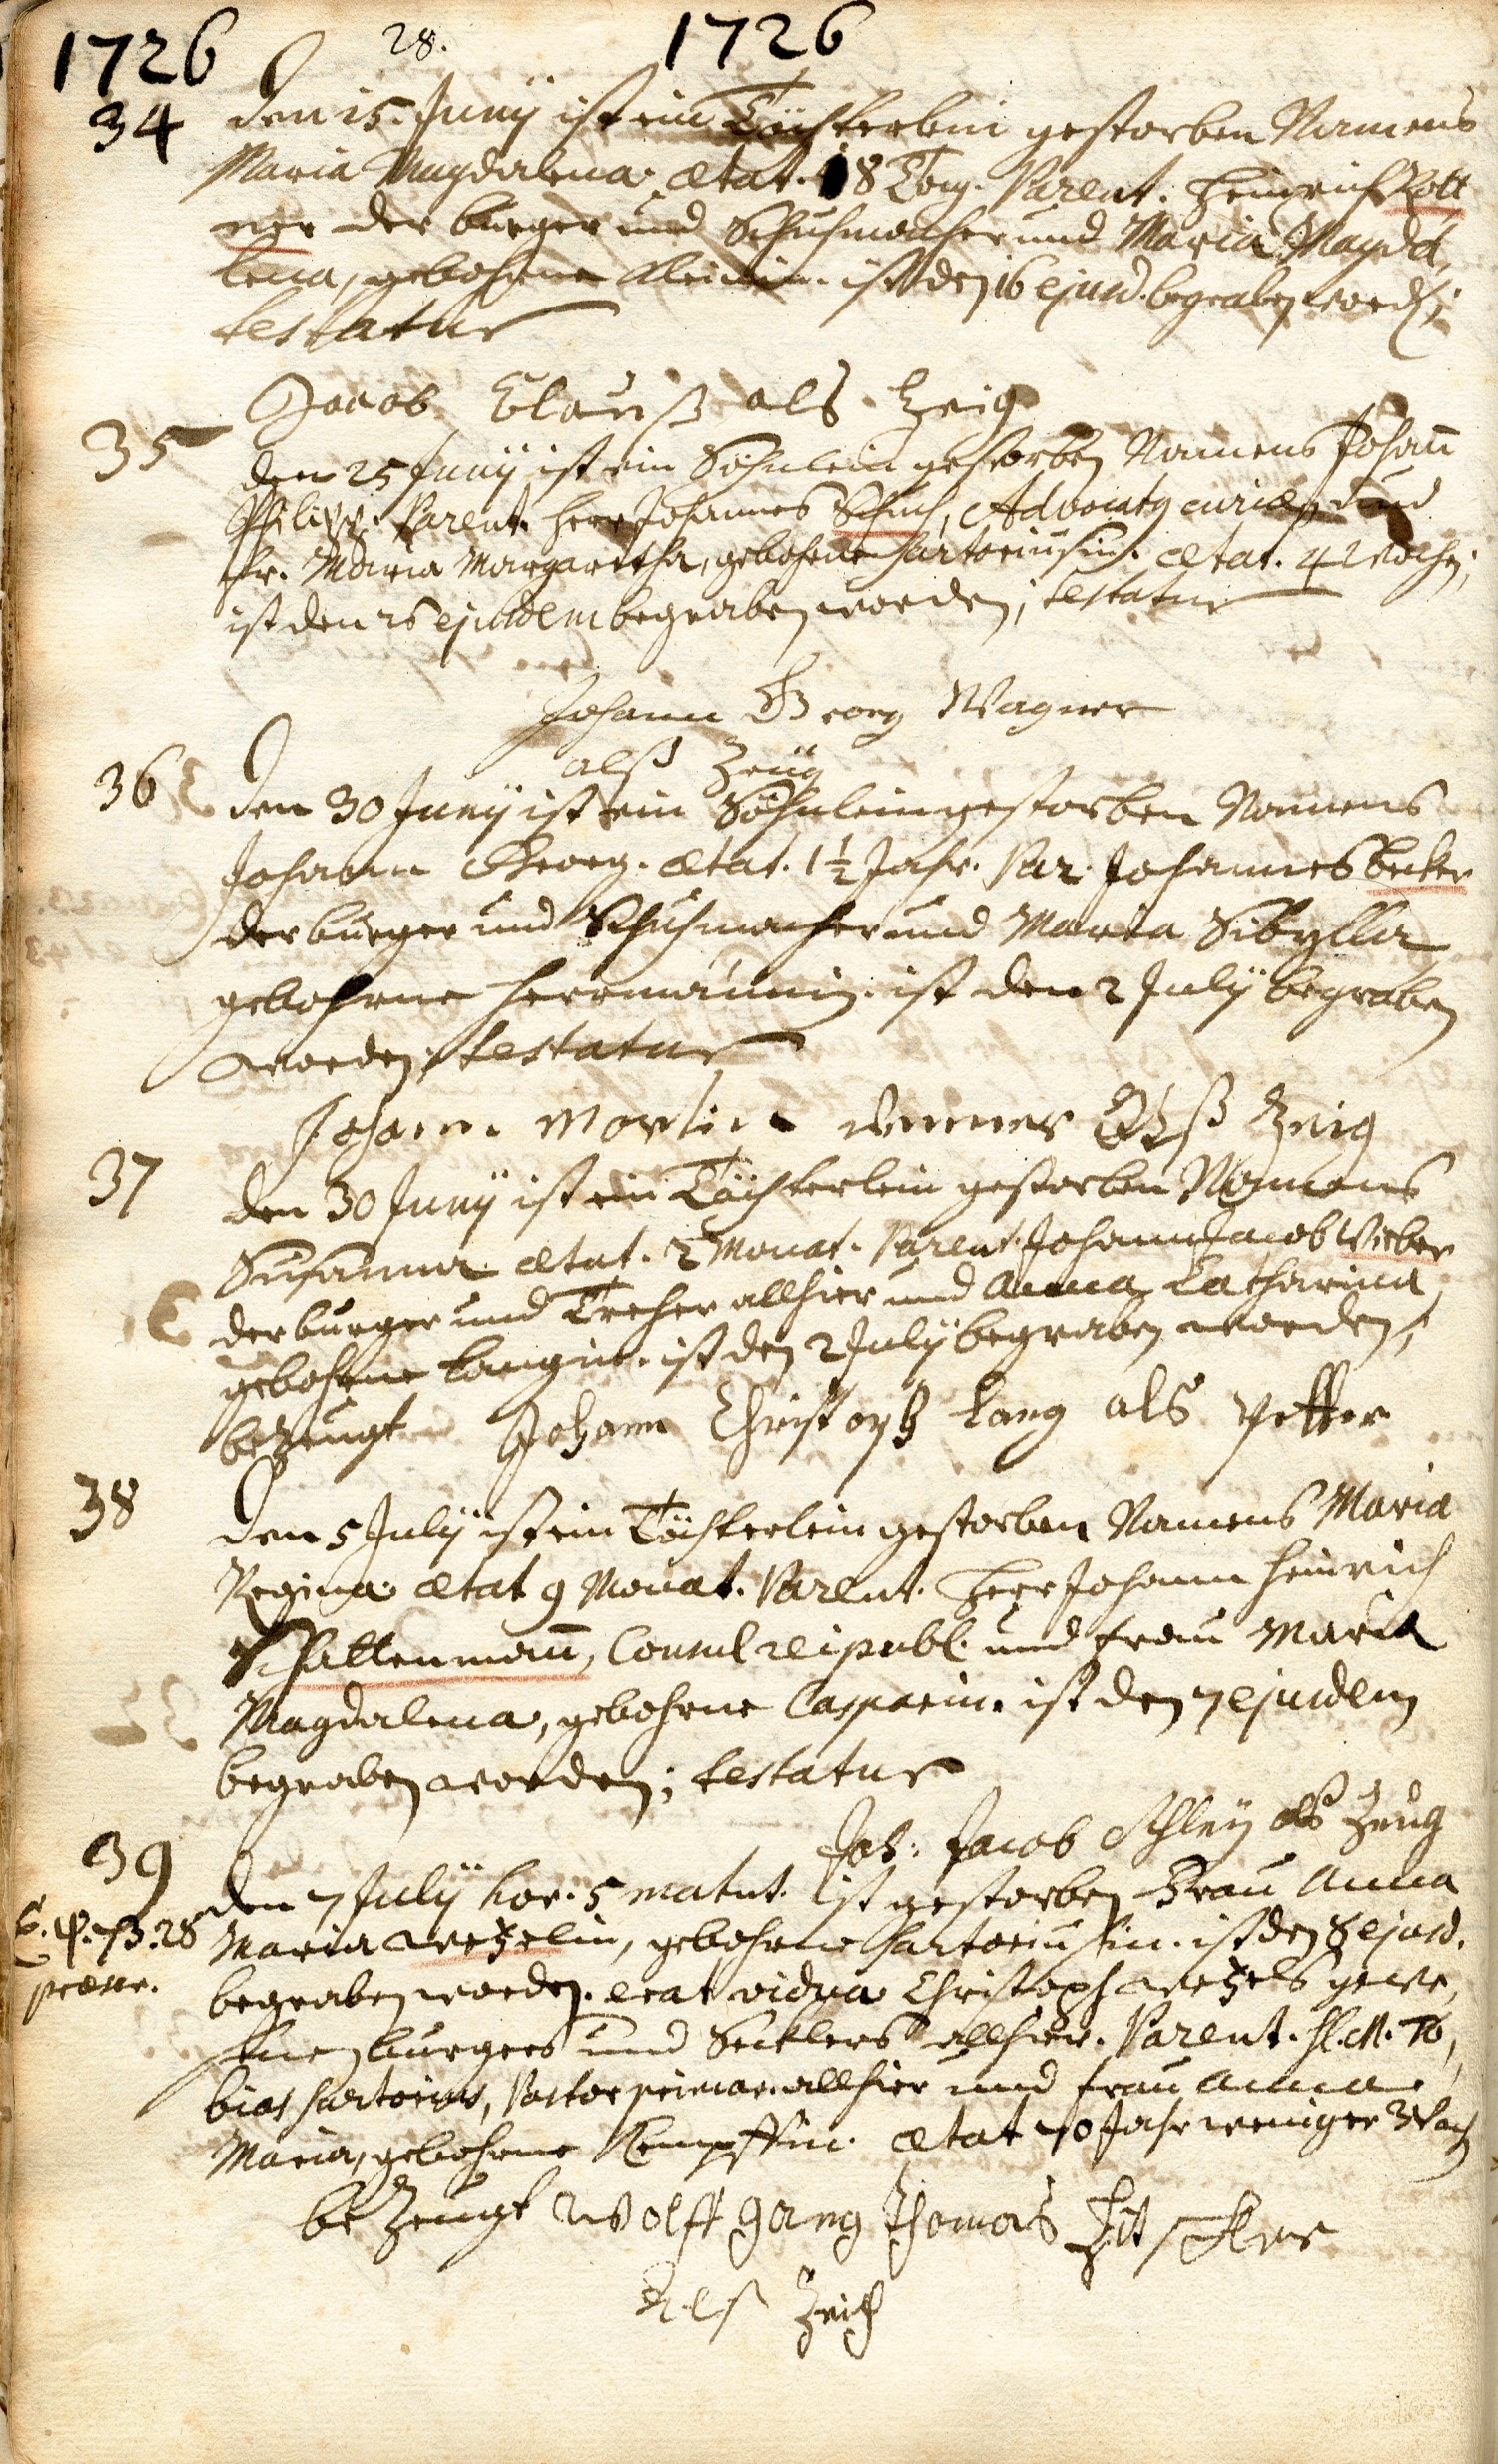 1726 28. 1726
34 Den 15. Junÿ ist ein Töchterlein gestorben Namens
Maria Magdalena. ætat. 18 Tag. Parent. Heinrich Rott
ner der burger und Schuhmacher und Maria Magda,
lena, gebohrne Kleinin. ist den 16 ejusd. begraben word.;
testatur
Jacob Clauß als Zeig
35 den 25 Junÿ ist ein Söhnlein gestorben Namens Johañ
Philipp. Parent. Herr Johannes Schuch, Advocatq curiæ, und
Fr. Maria Margaretha, gebohrne Sartoriusin. ætat. 4 Wochen;
ist den 26 ejusdem begraben worden; testatur
Johann Georg Wagner
alß Zeüg
36 Den 30 Junÿ ist ein Söhnlein gestorben Namens
Johann Georg. ætat. 1½ Jahr. Par. Johannes Becker
der burger und Schuhmacher und Maria Sibylla
gebohrne Herrmännin. ist den 2 Julÿ begraben
worden; testatur
Johann Martin Alß Zeig
37 Den 30 Junÿ ist ein Töchterlein gestorben Namens
Susanna ætat. 2 Monat. Parent. Johann Jacob Weber
der burger und Dreher allhier und Anna Catharina,
gebohrne Langin. ist den 2 Julÿ begraben worden,
bezeugt Johann Christoph Lang als Petter
38 Den 5 Julÿ ist ein Töchterlein gestorben Namens Maria
Regina. ætat 9 Monat. Parent. Herr Johann Heinrich
Schattenmañ, Consul reipubl. und Frau Maria
Magdalena, gebohrne Casparin. ist den 7 ejusdem
begraben worden; testatur
Joh: Jacob Schleÿ als Zeug
39 Den 7 Julÿ hor. 5 matut. ist gestorben Frau Anna
Maria Wetzelin, gebohrne Sartoriusin. ist den 8 ejusd.
begraben worden. erat vidua Christoph Wetzels gewe,
senen burgers und Seiklers allhier. Parent. H. M. To,
bias Sartorius, Pastor primar. allhier und Frau Anna
Maria, gebohrne Kempffin. ætat 70 Jahr weniger 3 Woch
bezeugt Wolffgang Thomas
Alß Zeich